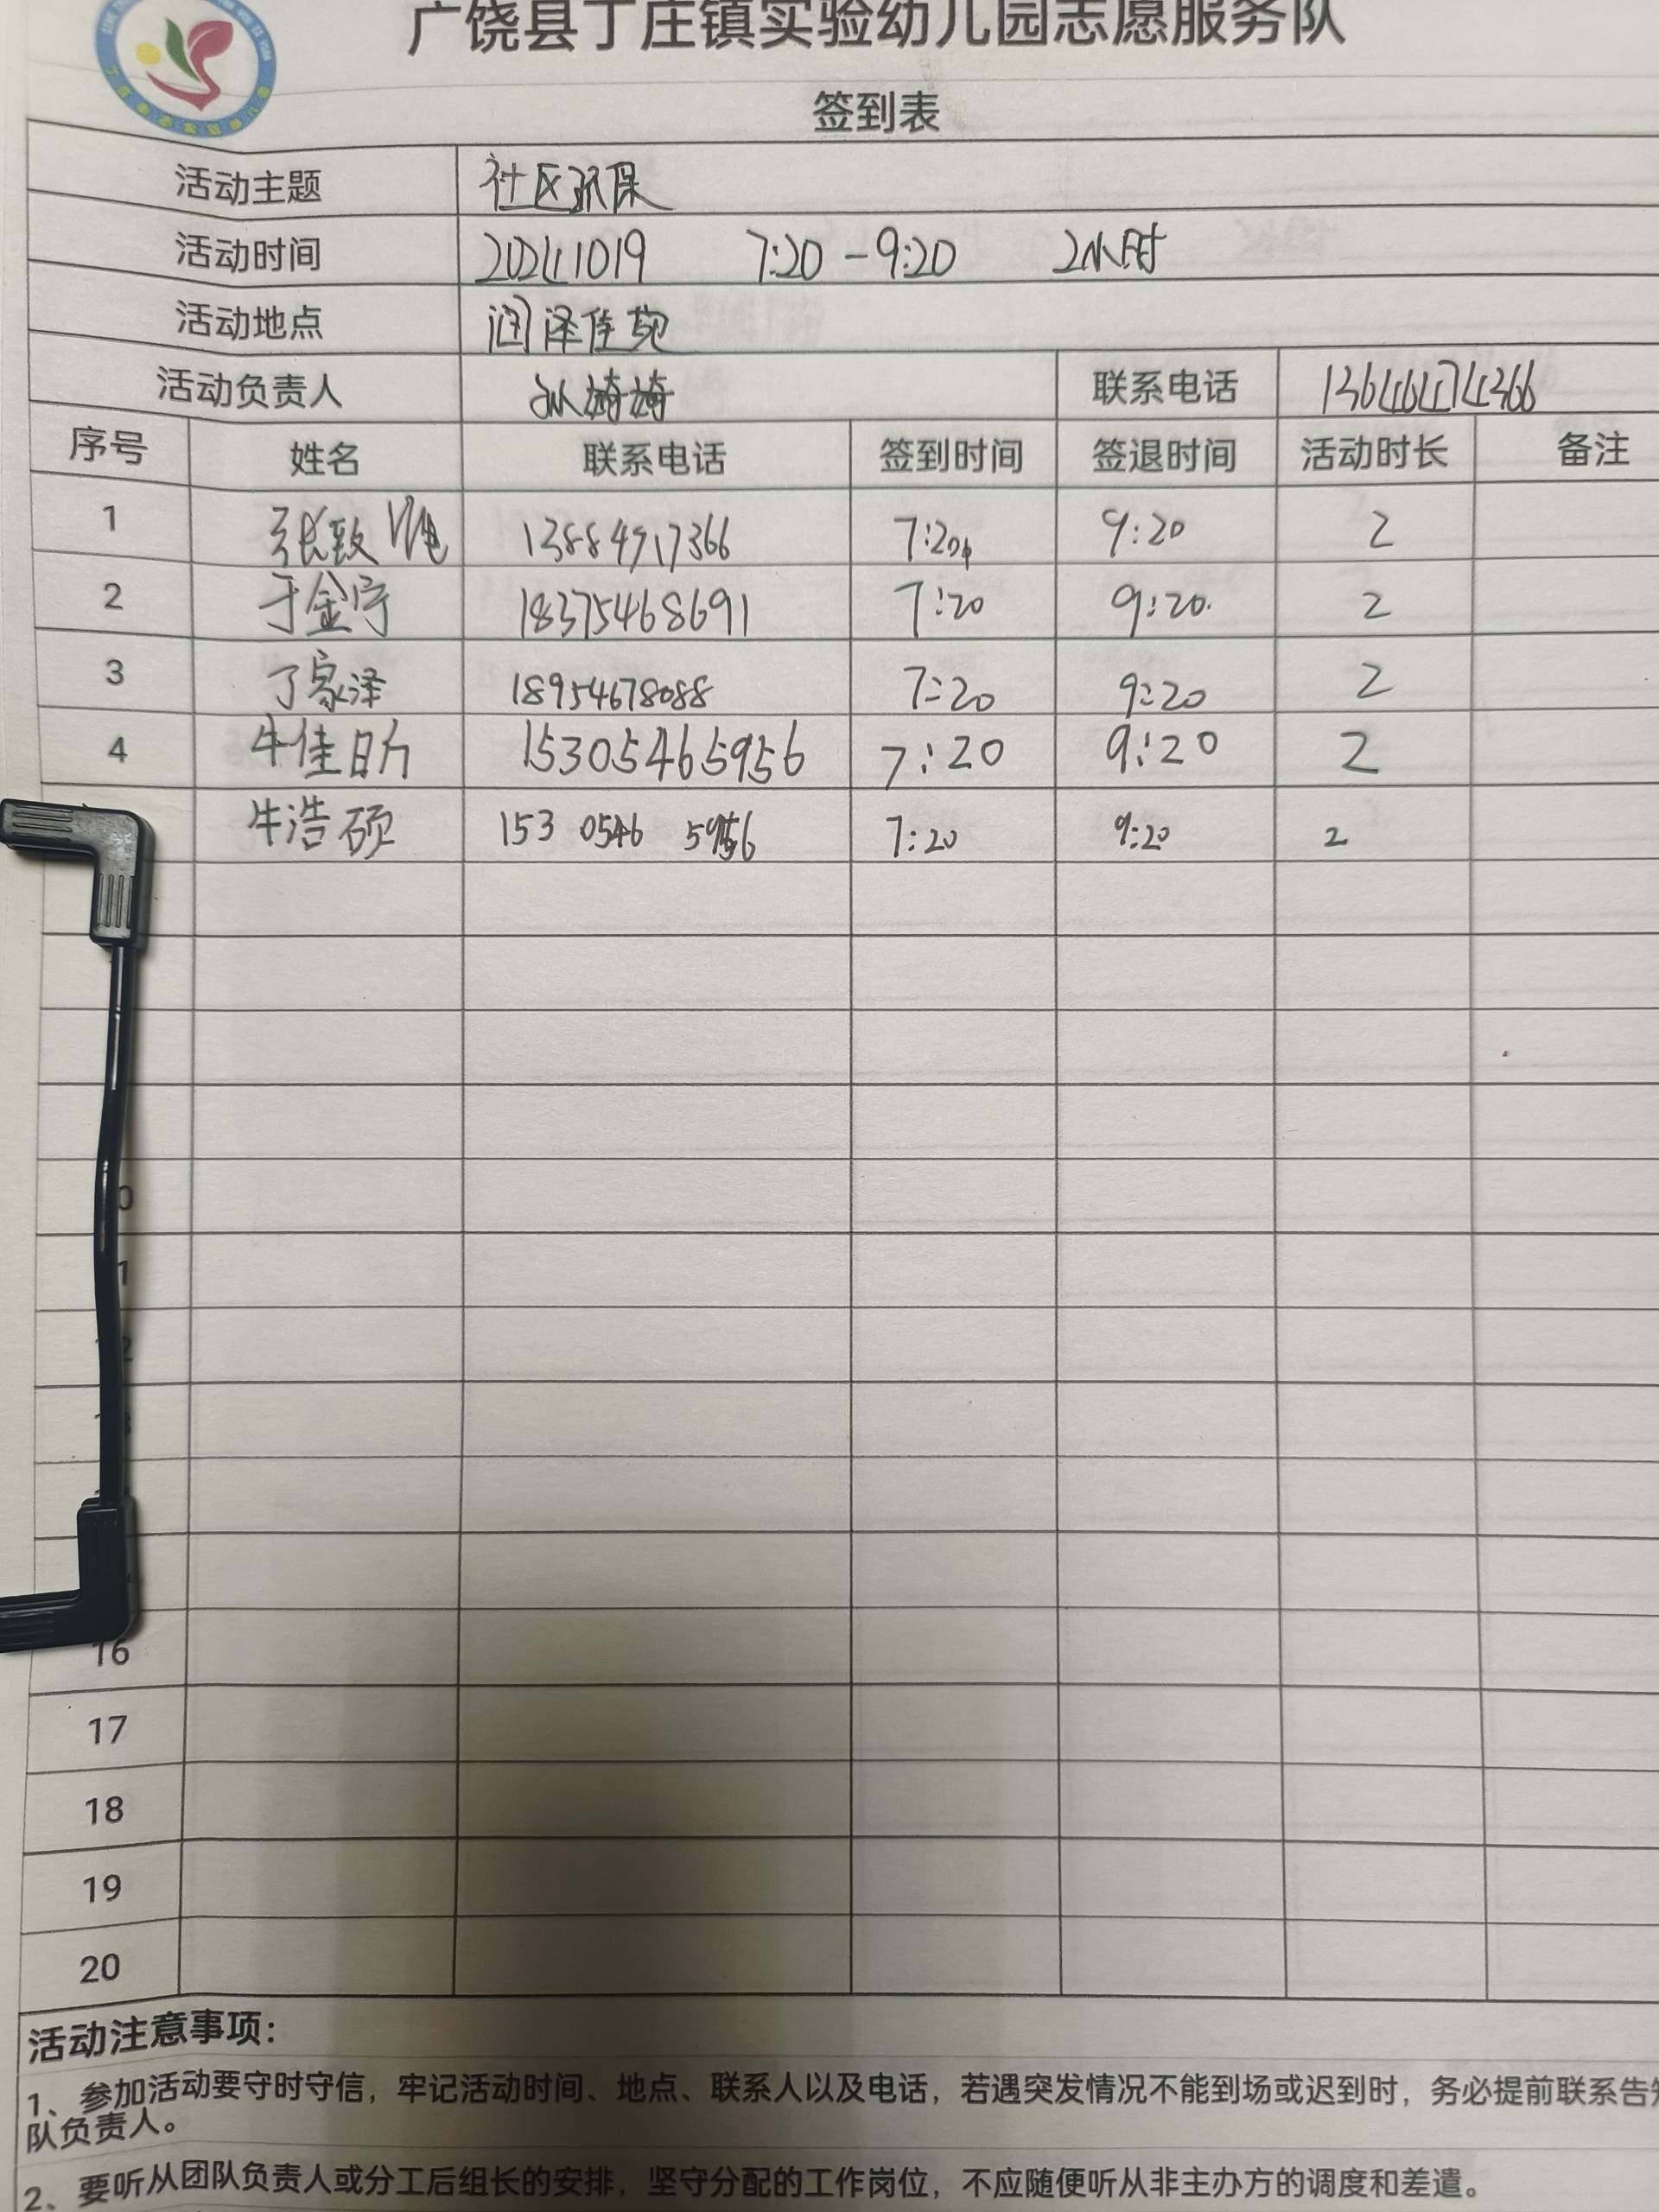 广饶县丁庄镇实验幼儿园志愿服务队
签到表
活动主题 社区环保
活动时间 20241019 7:20-9:20 2小时
活动地点 润泽佳苑
活动负责人 孙婍婍 联系电话 13646474366
序号 姓名 联系电话 签到时间 签退时间 活动时长 备注
1 张致 13884917366 7:20 9:20 2
2 于金宁 18375468691 7:20 9:20. 2
3 丁家泽 18954678088 7:20 9:20 2
4 牛佳昕 15305465956 7:20 9:20 2
牛浩硕 153 0546 5956 7:20 9:20 2
16
17
18
19
20
活动注意事项：
1、参加活动要守时守信，牢记活动时间、地点、联系人以及电话，若遇突发情况不能到场或迟到时，务必提前联系告知
队负责人。
2、要听从团队负责人或分工后组长的安排，坚守分配的工作岗位，不应随便听从非主办方的调度和差遣。